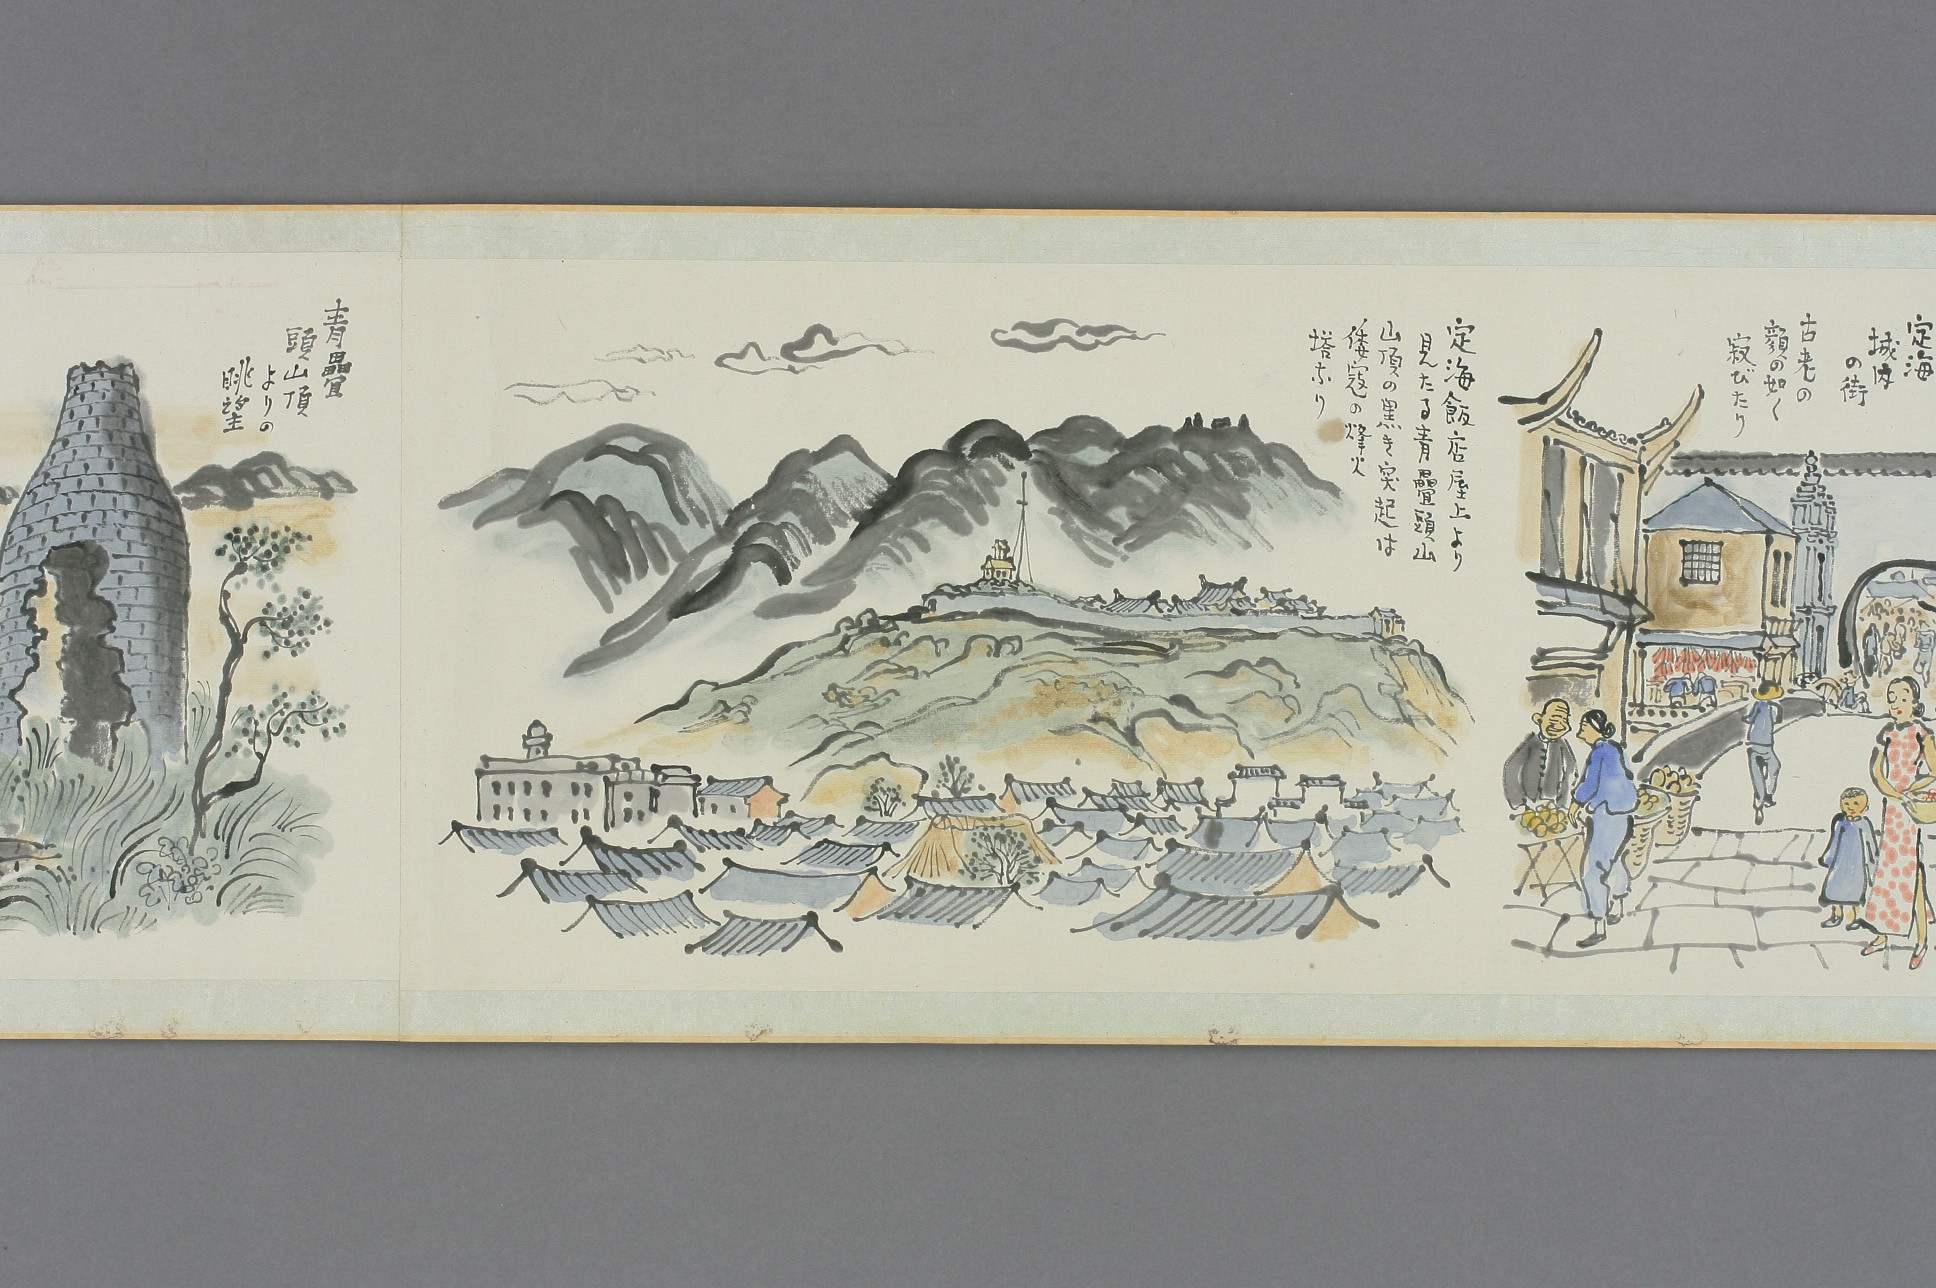 定海
城内
の街
古老の
顔の如く
寂びたり
定海飯店屋上より
見たる青疊頭山
山頂の黒き突起は
倭寇の烽火
塔なり
青疊
頭山頂
よりの
眺望